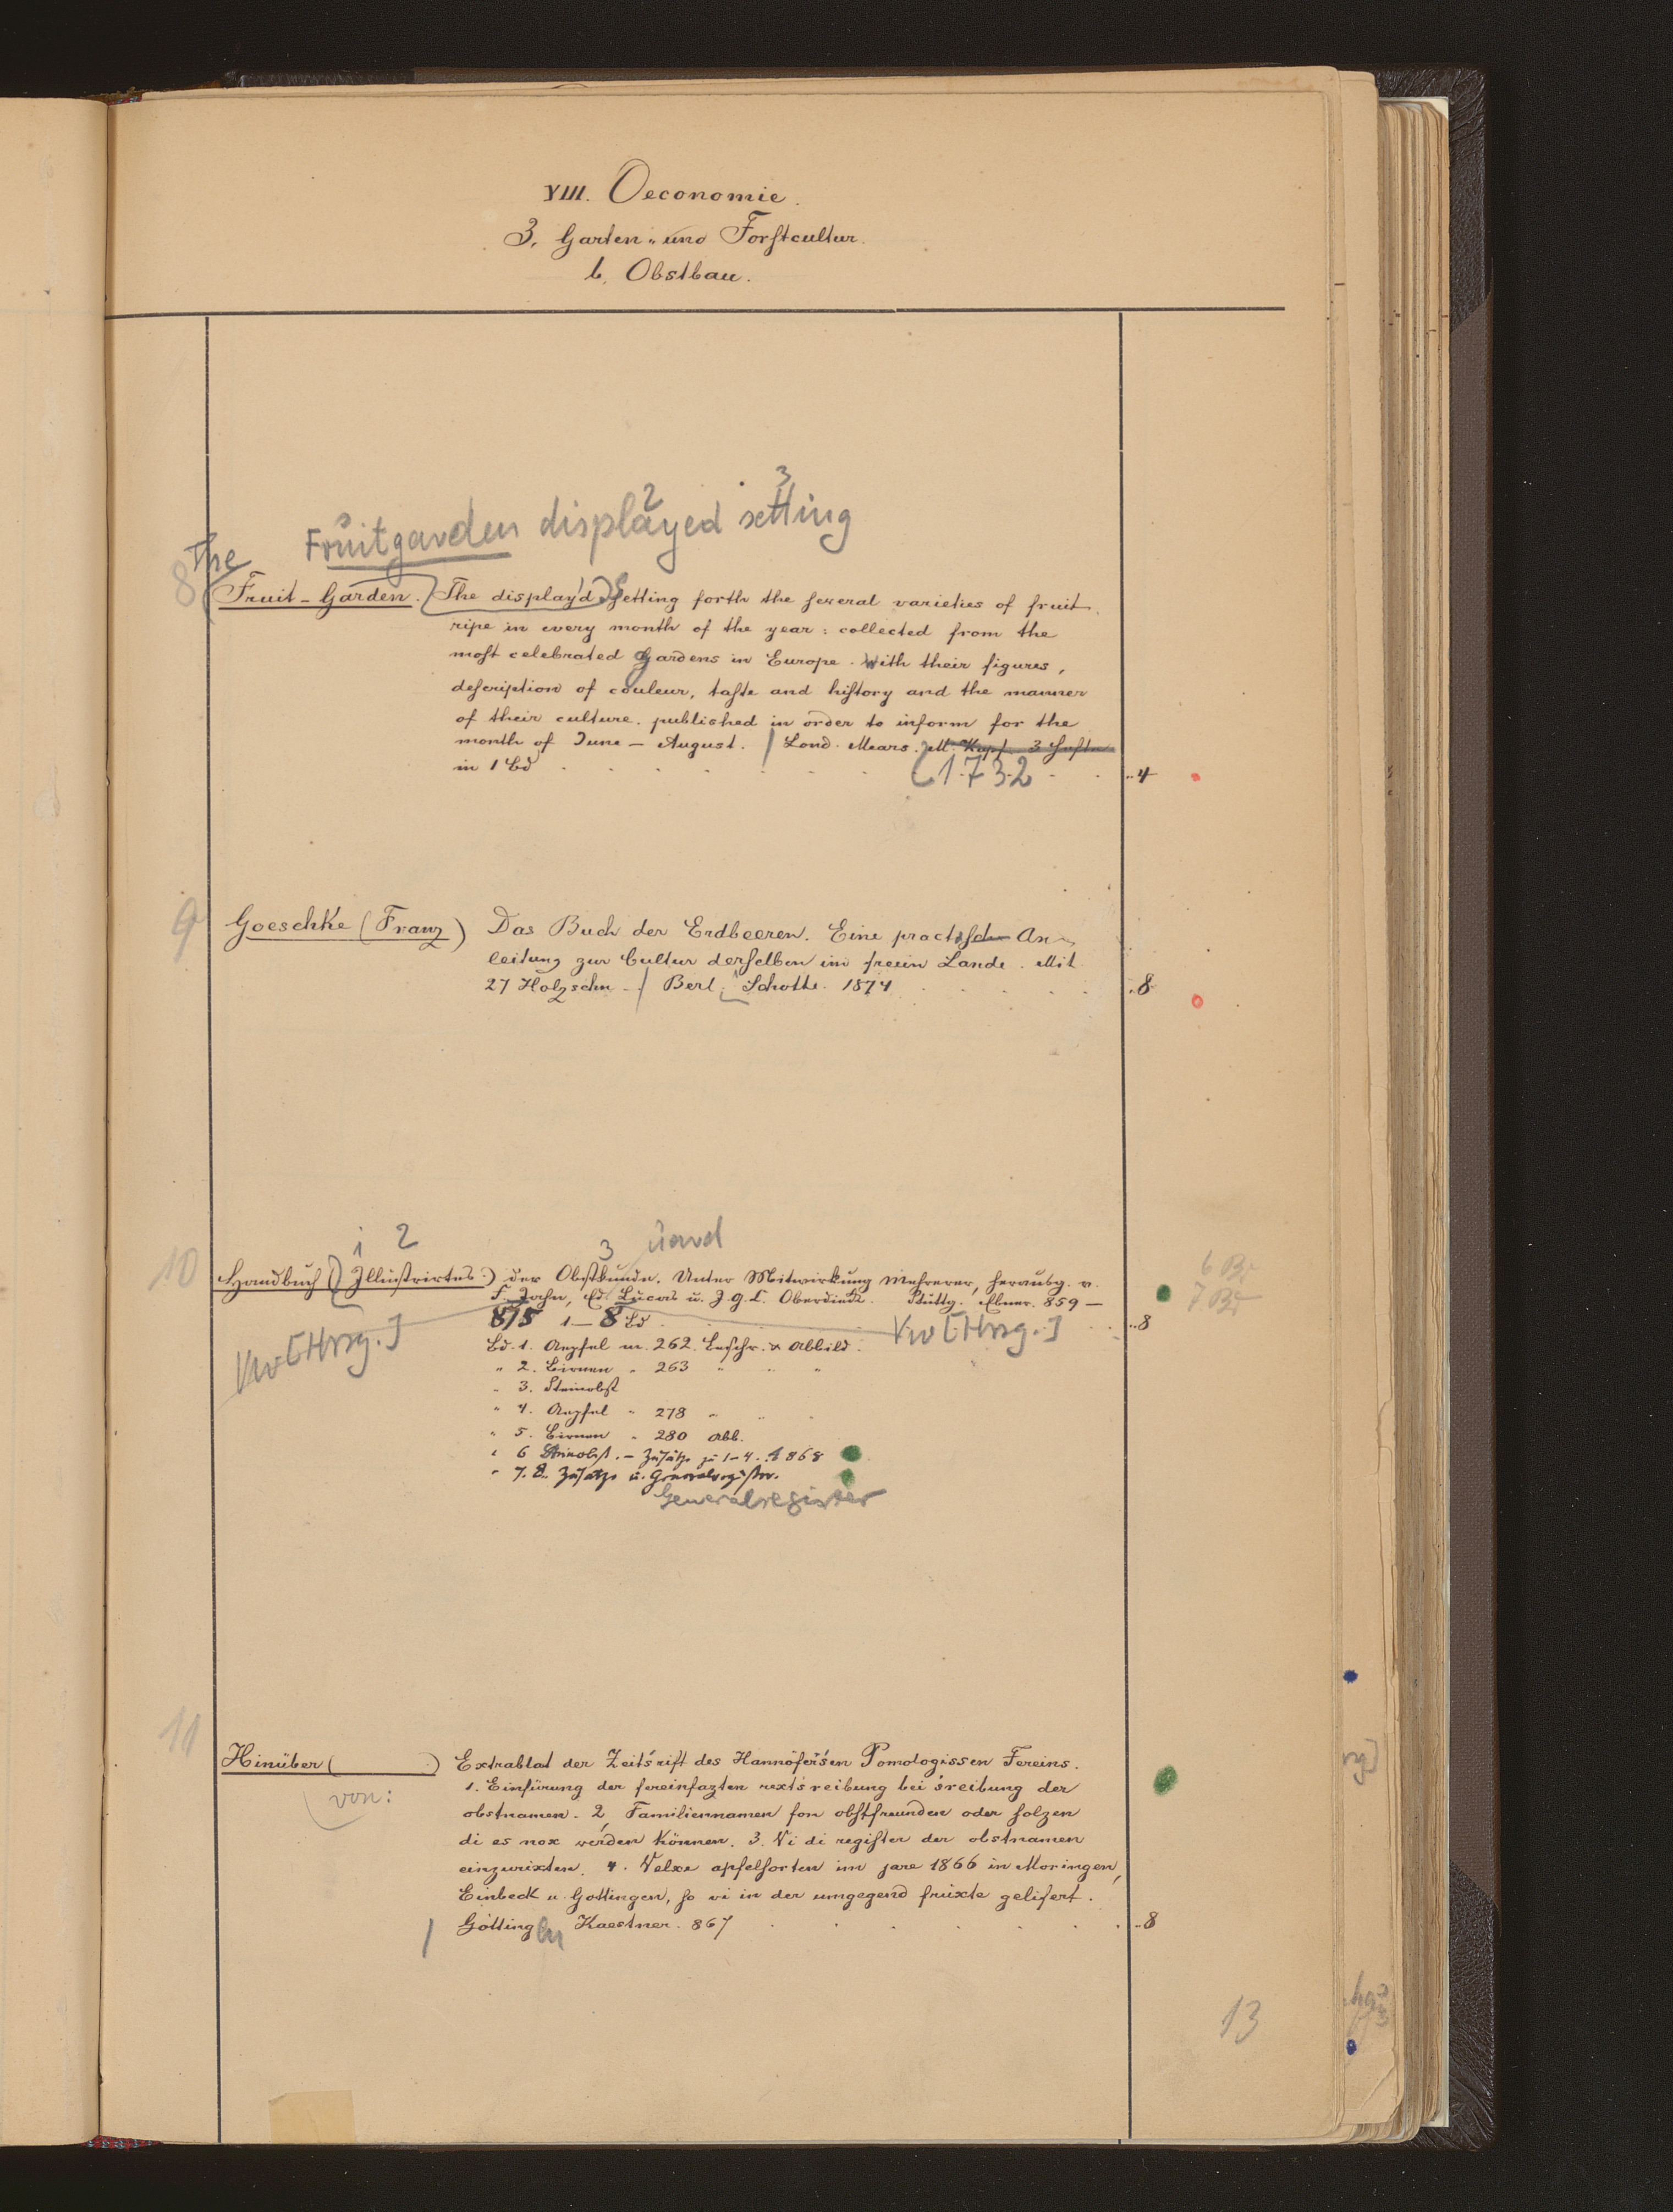 VIII. Oeconomie.
3. Garten- und Forstcultur.
b. Obstbau.
3
2
Fruitgarden displayed setting
The
8
Fruit-Garden. The display'd Setting forth the several varieties of fruit
ripe in every month of the year: collected from the
most celebrated Gardens in Europe. With their figures,
description of couleur, taste and history and the manner
of their culture. published in order to inform for the
month of June – August. Lond. Mears. M. Kupf. 3 Hefte
in 1 Bd
1732
4
9
Goeschke (Franz) Das Buch der Erdbeeren. Eine practische An-
leitung zur Cultur derselben im freien Lande. Mit
27 Holzschn. Berl. Schotte. 1874
8
1 2 3
10
Handbuch (Illustrirtes) der Obstkunde. Unter Mitwirkung Mehrerer, herausg. v.
F. Jahn, Ed. Lucas u. J. G. C. Oberdieck. Stuttg. Ebner. 859 –
875 1–8 Bd
8
6 Bd
7 Bd
Vw [Hrsg.]
Vw [Hrsg.]
Bd. 1. Aepfel m. 262. Beschr. u Abbild.
" 2. Birnen " 263 " " "
" 3. Steinobst
" 4. Aepfel " 278 " " "
" 5. Birnen " 280 Abb.
" 6 Steinobst. – Zusätze zu 1–4. 1868
" 7. 8. Zusätze u. Generalregister.
Generalregister
11
Hinüber ( ) Extrablat der Zeitsrift des Hannöfersen Pomologissen Fereins.
von:
1. Einfürung der fereinfazten rextsreibung bei sreibung der
obstnamen. 2, Familiennamen fon obstfreunden oder solzen
di es nox werden können. 3. Vi di register der obstnamen
einzurixten. 4. Velxe apfelsorten im jare 1866 in Moringen,
Einbeck u. Gottingen, so vi in der umgegend früxte gelifert.
Göttingen Kaestner. 867
8
13